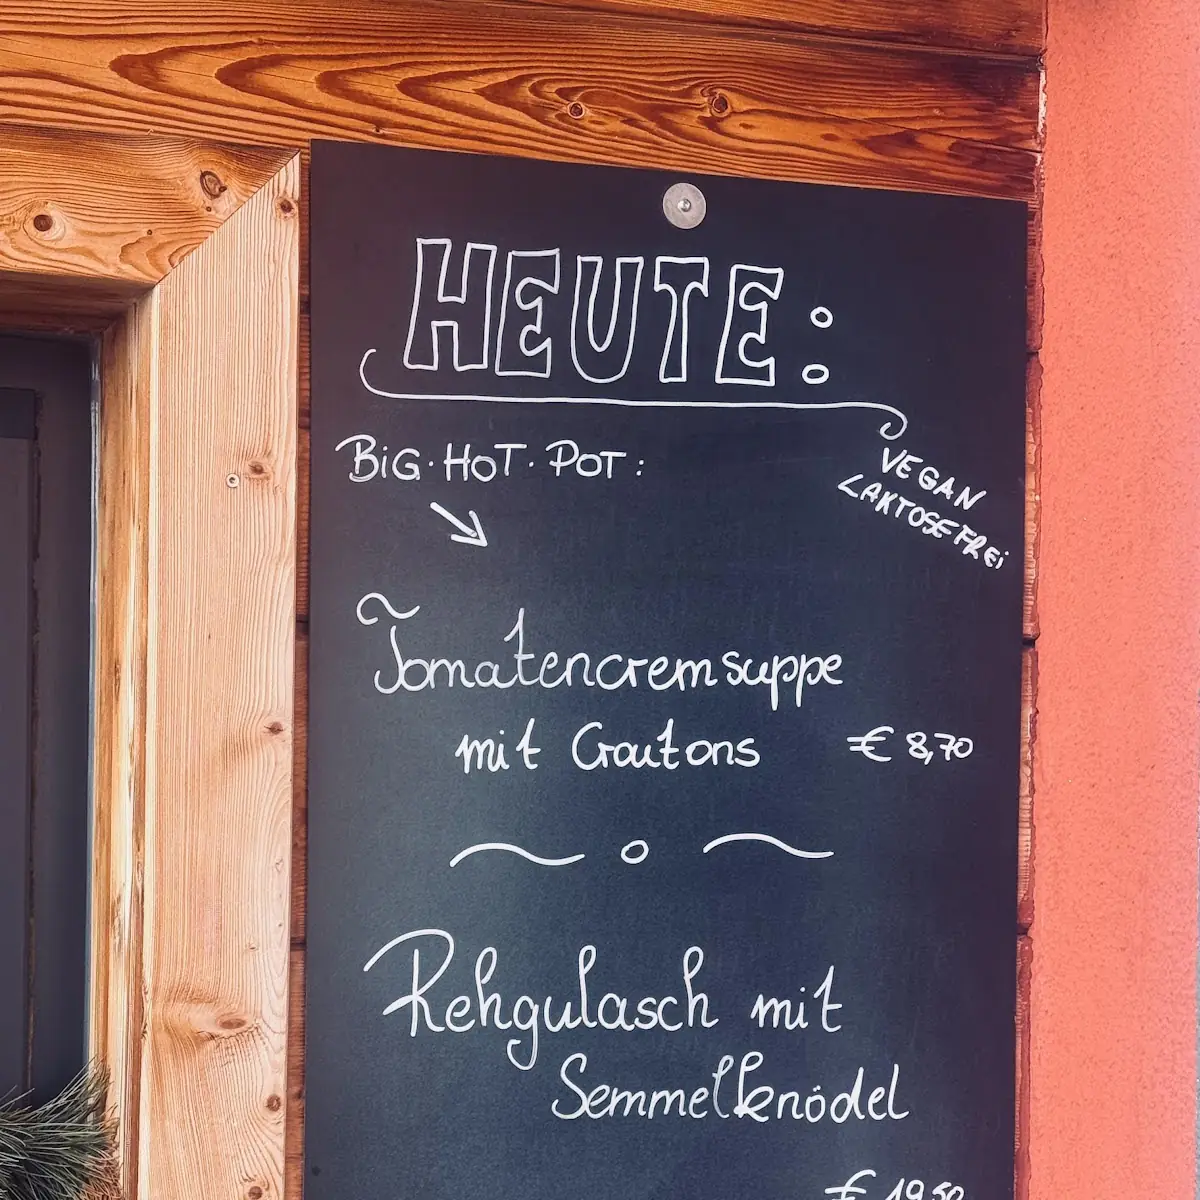 HEUTE:
BIG·HOT·POT:
VEGAN
LAKTOSEFREI
Tomatencremsuppe
mit Croutons € 8,70
Rehgulasch mit
Semmelknödel
€ 19,50